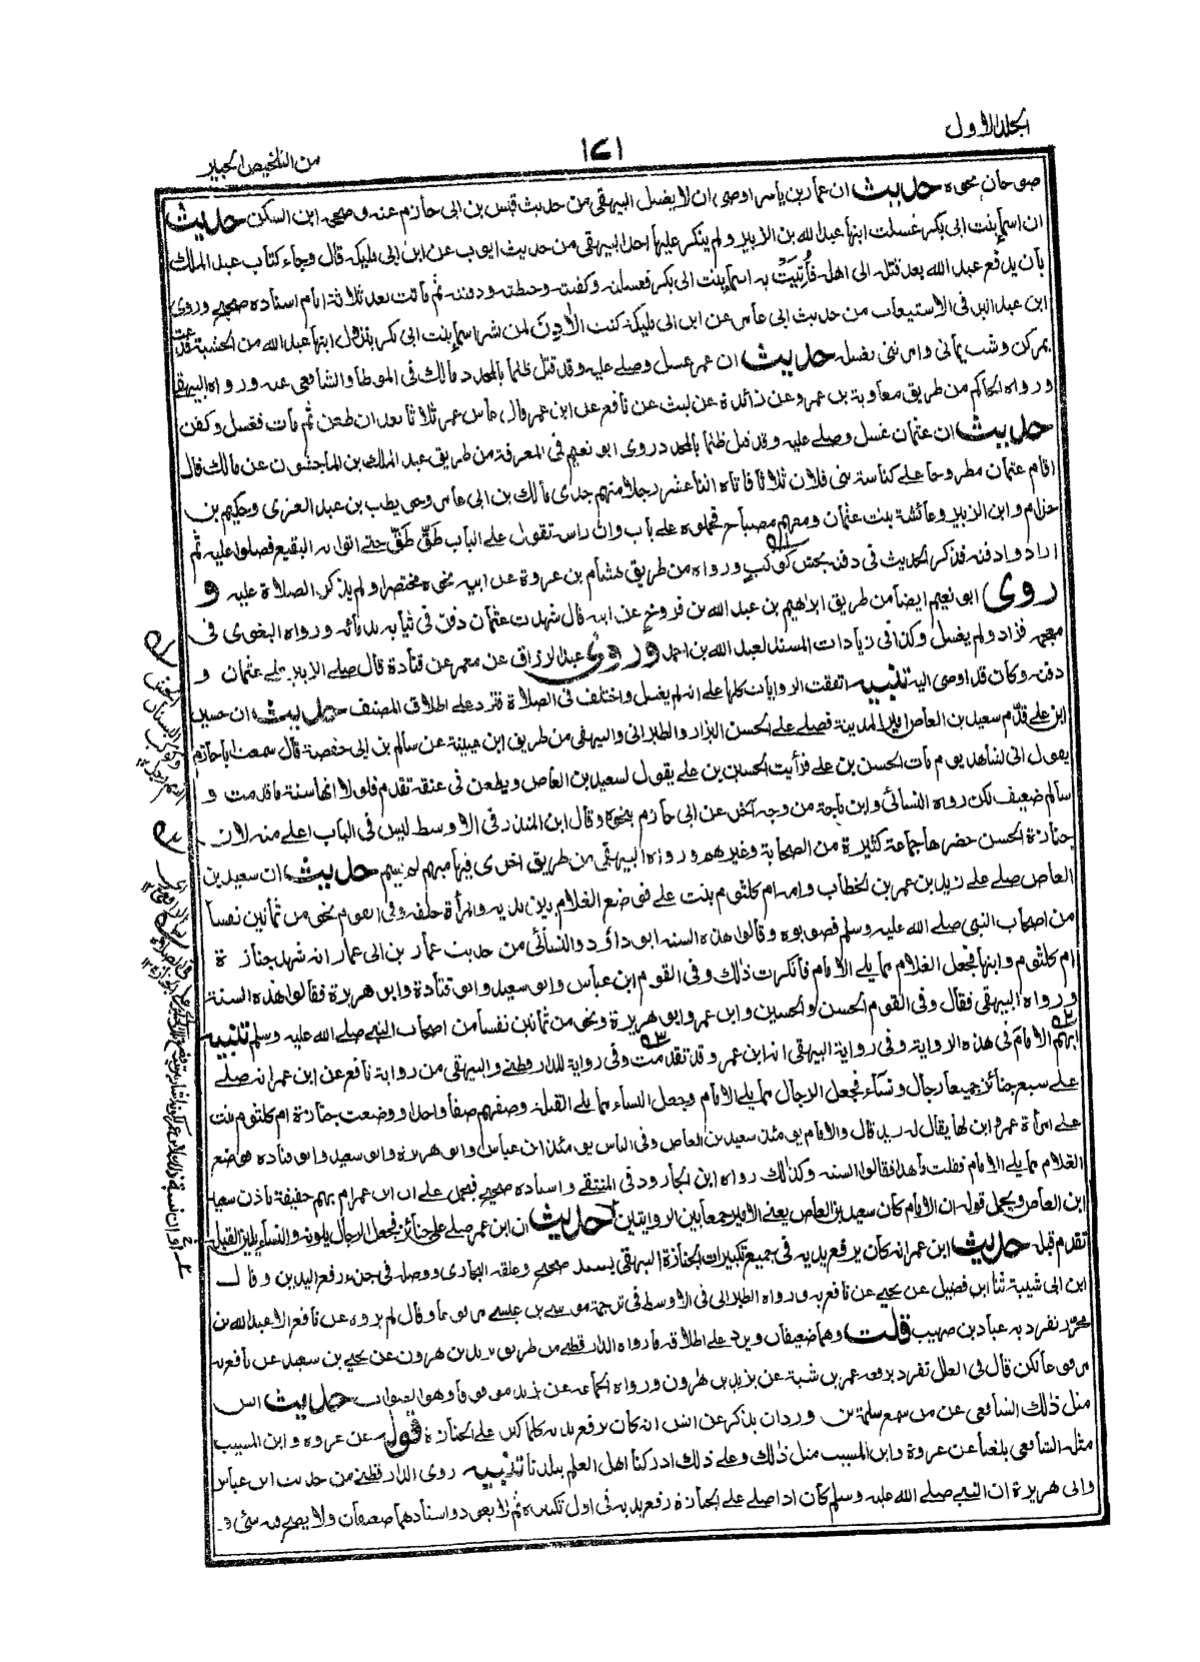 الجلد الاول
١٧١
من التلخيص الحبير
صوحان نحوه حديث ان عمار بن ياسر اوصى ان لا يغسل البيهقي من حديث قيس بن ابي حازم عنه وصححه ابن السكن حديث
ان اسماء بنت ابي بكر غسلت ابنها عبد الله بن الزبير ولم ينكر عليها احد البيهقي من حديث ايوب عن ابن ابي مليكة قال وجاء كتاب عبد الملك
بان يدفع عبد الله بعد قتله الى اهله فأتيت به اسماء بنت ابي بكر فغسلته وكفنته وحنطته ودفنته ثم ماتت بعد ثلاثة ايام اسناده صحيح وروى
ابن عبد البر في الاستيعاب من حديث ابي عامر عن ابن ابي مليكة كنت الآذن لمن بشر اسماء بنت ابي بكر بنزول ابنها عبد الله من الخشبة فدعت
بمركن وشب يماني وامرتني بغسله حديث ان عمر غسل وصلي عليه وقد قتل ظلما بالمحدد مالك في الموطأ والشافعي عنه ورواه البيهقي
ورواه الحاكم من طريق معاوية بن عمرو عن زائدة عن ليث عن نافع عن ابن عمر قال عاش عمر ثلاثا بعد ان طعن ثم مات فغسل وكفن
حديث ان عثمان غسل وصلي عليه وقد قتل ظلما بالمحدد روى ابو نعيم في المعرفة من طريق عبد الملك بن الماجشون عن مالك قال
اقام عثمان مطروحا على كناسة بني فلان ثلاثا فاتاه اثنا عشر رجلا منهم جدي مالك بن ابي عامر وحويطب بن عبد العزى وحكيم بن
حزام وابن الزبير وعائشة بنت عثمان ومعهم مصباح فحملوه على باب وان راسه تقول على الباب طق طق حتى اتوا به البقيع فصلوا عليه ثم
ارادوا دفنه فذكر الحديث في دفنه بحش كوكب ورواه من طريق هشام بن عروة عن ابيه نحوه مختصرا ولم يذكر الصلاة عليه و
روى ابو نعيم ايضا من طريق ابراهيم بن عبد الله بن فروخ عن ابيه قال شهدت عثمان دفن في ثيابه بدمائه ورواه البغوي في
معجمه فزاد ولم يغسل وكذا في زيادات المسند لعبد الله بن احمد وروى عبد الرزاق عن معمر عن قتادة قال صلى الزبير على عثمان و
دفنه وكان قد اوصى اليه تنبيه اتفقت الروايات كلها على انه لم يغسل واختلف في الصلاة فترد على اطلاق المصنف حديث ان حسين
ابن علي قدم سعيد بن العاص امير المدينة فصلى على الحسن البزار والطبراني والبيهقي من طريق ابن عيينة عن سالم بن ابي حفصة قال سمعت ابا حازم
يقول اني لشاهد يوم مات الحسن بن علي فرأيت الحسين بن علي يقول لسعيد بن العاص ويطعن في عنقه تقدم فلولا انها سنة ما قدمت و
سالم ضعيف لكن رواه النسائي وابن ماجة من وجه آخر عن ابي حازم بنحوه وقال ابن المنذر في الاوسط ليس في الباب اعلى منه لان
جنازة الحسن حضرها جماعة كثيرة من الصحابة وغيرهم ورواه البيهقي من طريق اخرى فيها مبهم لم يسم حديث ان سعيد بن
العاص صلى على زيد بن عمر بن الخطاب وامه ام كلثوم بنت علي فوضع الغلام بين يديه والمرأة خلفه وفي القوم نحو من ثمانين نفسا
من اصحاب النبي صلى الله عليه وسلم فصوبوه وقالوا هذه السنة ابو داؤد والنسائي من حديث عمار بن ابي عمار انه شهد جنازة
ام كلثوم وابنها فجعل الغلام مما يلي الامام فانكرت ذلك وفي القوم ابن عباس وابو سعيد وابو قتادة وابو هريرة فقالوا هذه السنة
ورواه البيهقي فقال وفي القوم الحسن والحسين وابن عمر وابو هريرة ونحو من ثمانين نفسا من اصحاب النبي صلى الله عليه وسلم تنبيه
ابهم الامام في هذه الرواية وفي رواية البيهقي انه ابن عمر وقد تقدمت وفي رواية للدارقطني والبيهقي من رواية نافع عن ابن عمر انه صلى
على سبع جنائز جميعا رجال ونساء فجعل الرجال مما يلي الامام وجعل النساء مما يلي القبلة وصفهم صفا واحدا ووضعت جنازة ام كلثوم بنت
علي امرأة عمر وابن لها يقال له زيد قال والامام يومئذ سعيد بن العاص وفي الناس يومئذ ابن عباس وابو هريرة وابو سعيد وابو قتادة فوضع
الغلام مما يلي الامام فقلت ما هذا قالوا السنة وكذلك رواه ابن الجارود في المنتقى واسناده صحيح فيحمل على ان ابن عمر ام بهم حقيقة باذن سعيد
ابن العاص ويحمل قوله ان الامام كان سعيد بن العاص يعني الامير جمعا بين الروايتين حديث ان ابن عمر صلى على جنائز فجعل الرجال يلونه والنساء يلين القبلة
تقدم قبله حديث ابن عمر انه كان يرفع يديه في جميع تكبيرات الجنازة البيهقي بسند صحيح وعلقه البخاري ووصله في جزء رفع اليدين وقال
ابن ابي شيبة ثنا ابن فضيل عن يحيى عن نافع به ورواه الطبراني في الاوسط في ترجمة موسى بن عيسى مرفوعا وقال لم يروه عن نافع الا عبد الله بن
محرر تفرد به عباد بن صهيب قلت وهما ضعيفان ويرد على اطلاقه ما رواه الدارقطني من طريق يزيد بن هرون عن يحيى بن سعيد عن نافع به
مرفوعا لكن قال في العلل تفرد برفعه عمر بن شبة عن يزيد بن هرون ورواه الجماعة عن يزيد موقوفا وهو الصواب حديث انس
مثل ذلك الشافعي عن من سمع سلمة بن وردان يذكر عن انس انه كان يرفع يديه كلما كبر على الجنازة قوله عن عروة وابن المسيب
مثله الشافعي بلغنا عن عروة وابن المسيب مثل ذلك وعلى ذلك ادركنا اهل العلم ببلدنا تنبيه روى الدارقطني من حديث ابن عباس
وابي هريرة ان النبي صلى الله عليه وسلم كان اذا صلى على الجنازة رفع يديه في اول تكبيرة ثم لا يعود واسنادهما ضعيفان ولا يصح فيه شئ و